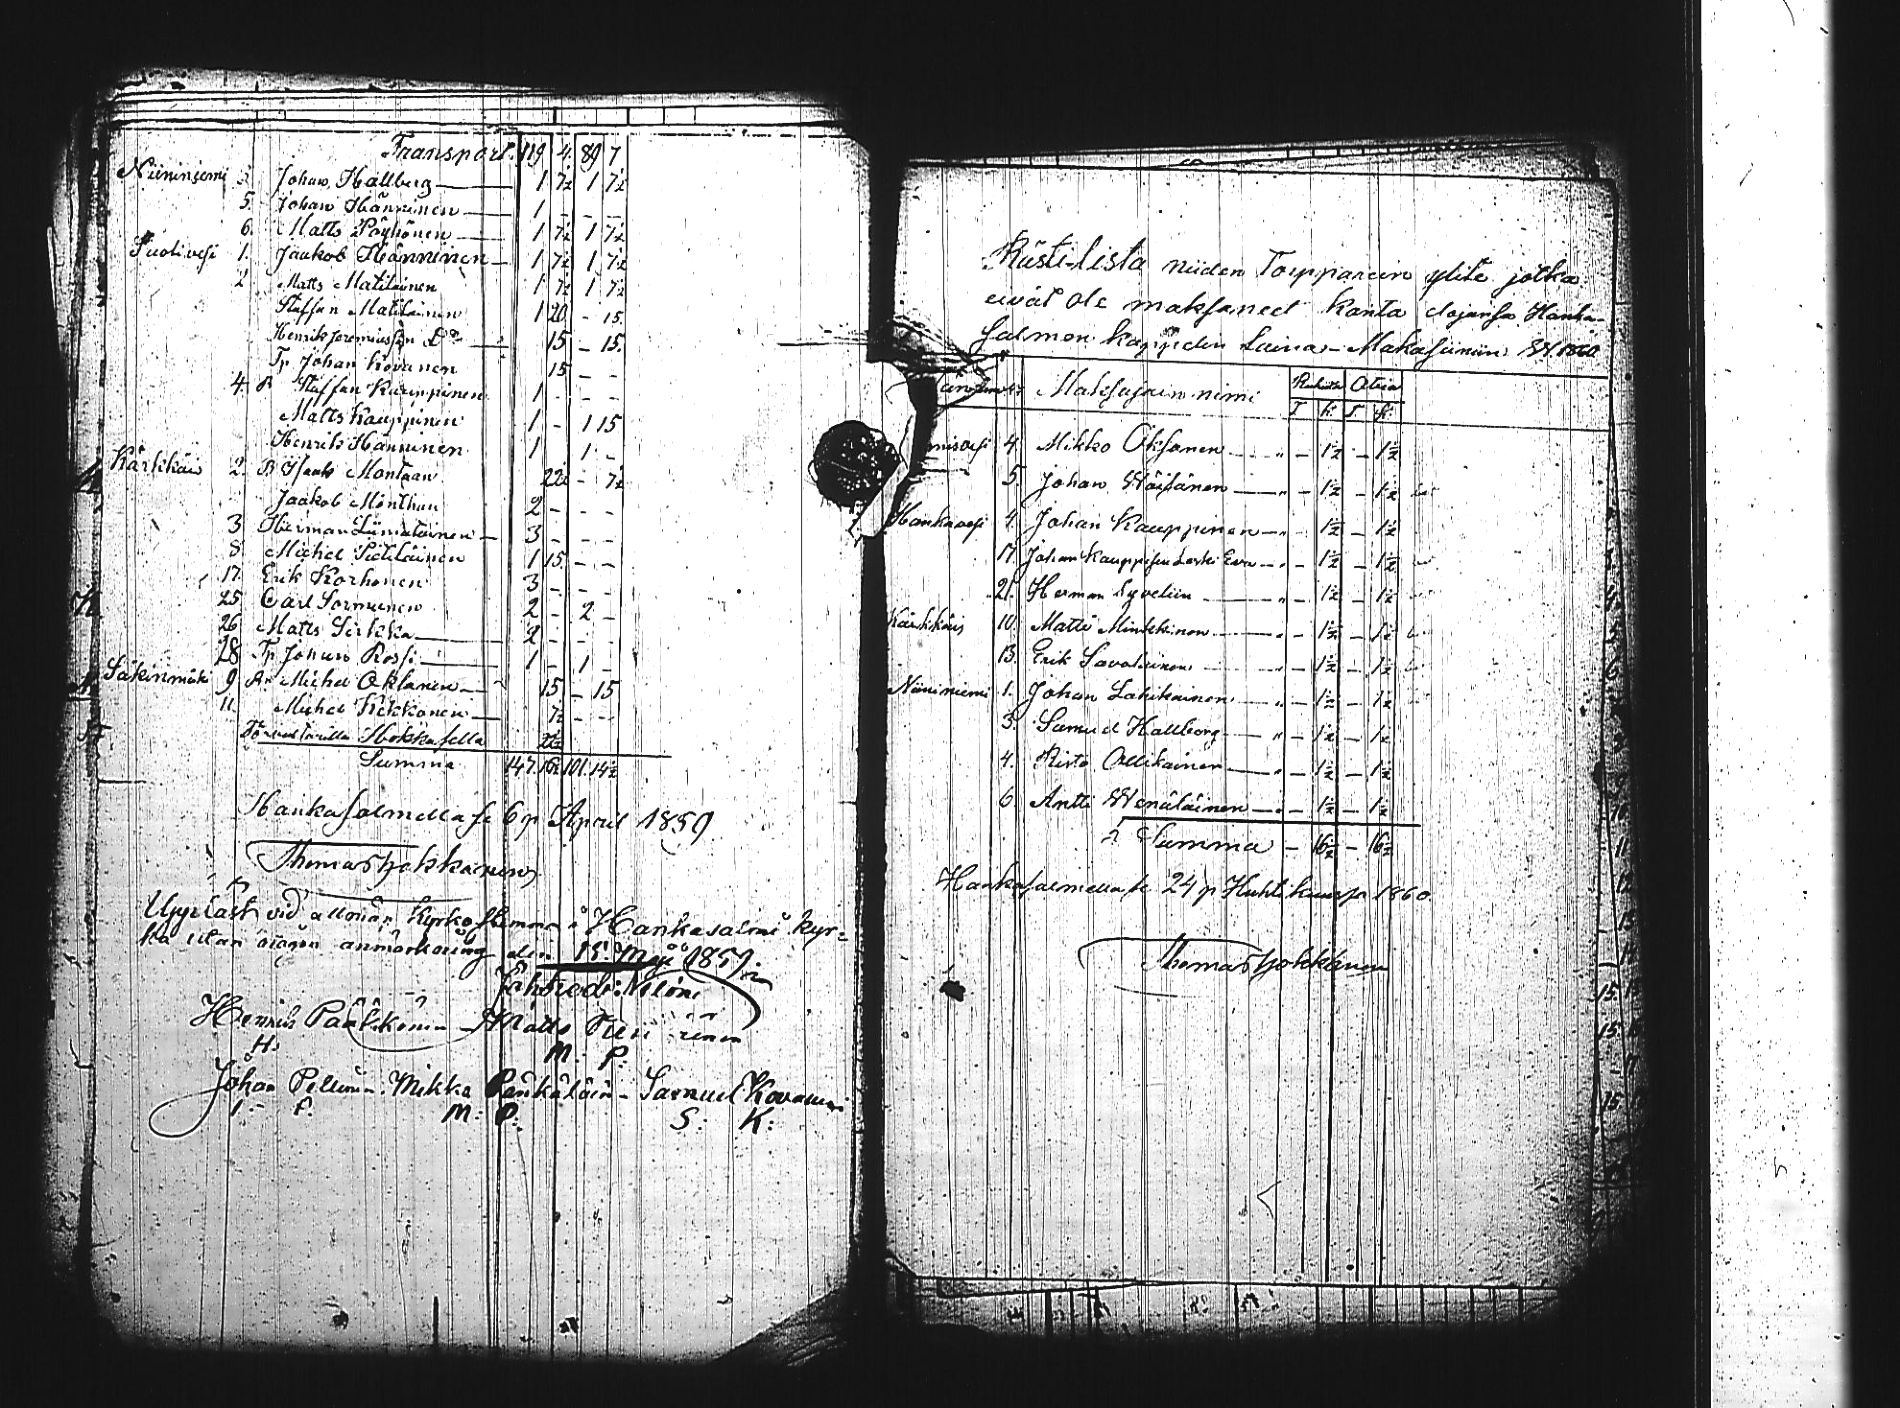 Transport. 119 4. 89 7
Niininiemi 3 Johan Hallberg 1 7½ 1 7½
5. Johan Hänninen 1 - - -
6. Matts Pöyhönen 1 7½ 1 7½
Suolivesi 1. Jaakob Hänninen 1 7½ 1 7½
2 Matts Matilainen 1 7½ 1 7½
Staffan Matilainen 1 20 - 15
Henrik 15 - 15.
Tp Johan Kovanen 15 - -
4. R Staffan Kauppinen 1 - - -
Matts Kauppinen 1 - 1 15
Henrik Hänninen 1 1 -
Kärkkäis 2. R Montaan 22½ - 7½
Jaakob Monthan 2 - - -
3 Herman Liimatainen 3 - - -
8. Michel 1 15 - -
17. Erik Korhonen 3 - - -
25 Carl Sormunen 2 - 2 -
26 Matts Sirkka 2 - - -
28 Tp Johan Rossi 1 - 1 -
Säkinmäki 9 Michel Oksanen 15 - 15
11 Michel Kekkonen 7½ - -
Hokkasella
Summa 147. 16½ 101. 14½
Hankasalmella se 6 p April 1859
Thomas Hokkanen
Uppläst vid allmän Kyrkostemma i Hankasalmi kyr=
ka utan någon anmärkning den 15 Maji 1859.
Henrik Pääkkönen Matts
H. M: P:
Johan Pellinen Mikko Samuel Kovanen
J: P. M: P: S: K:
Rästi-Lista niiden Torpparein ylite jotka
eivät Ole maksaneet kanta Hanka-
salmen kappelin Laina-Makasiiniin
Maksajain nimi Rukiita Otria
T K: T K:
4. Mikko Oksanen " - 1½ - 1½
5 Johan Väisänen " - 1½ - 1½
Hankavesi 4. Johan Kauppinen " - 1½ - 1½
17. Johan Kauppisen Leski Eva " - 1½ - 1½
21. Herman Syvelin " - 1½ - 1½
Kärkkäis 10. Matti Minkkinen " - 1½ - 1½
13. Erik Savolainen " - 1½ - 1½
Niininiemi 1. Johan Lahikainen " - 1½ - 1½
3. Samuel Hallberg " - 1½ - 1½
4. Risto Ollikainen " - 1½ - 1½
6. Antti Wenäläinen " - 1½ - 1½
Summa - 16½ - 16½
Hankasalmella se 24 p Huhtikuussa 1860.
Thomas Hokkanen